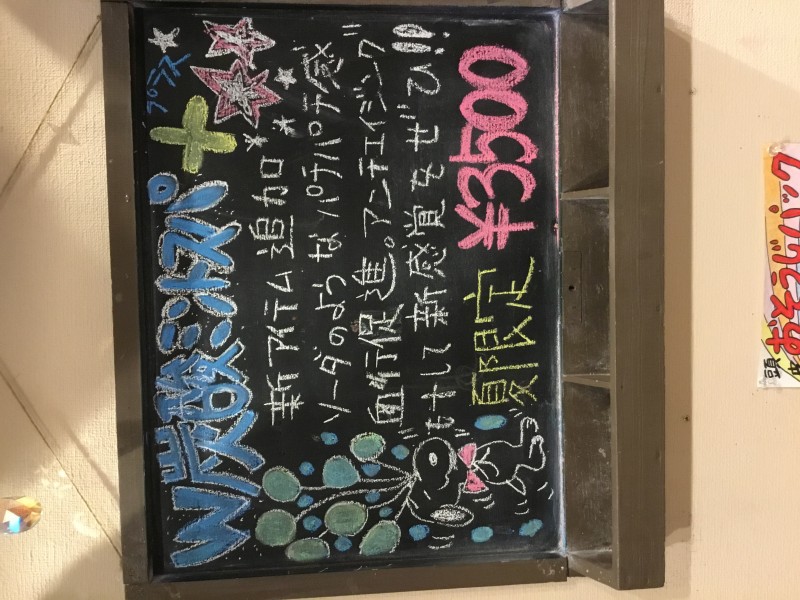 W炭酸ミントスパ+
プラス
新アイテム追加。
ソーダのようなパチパチ感
血行促進。アンチエイジング
そして新感覚をぜひ!!
夏限定 ¥3500
おそうじパック